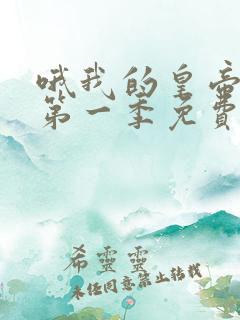 哦我的皇帝
第一季免費
希靈靈
未经同意禁止转载